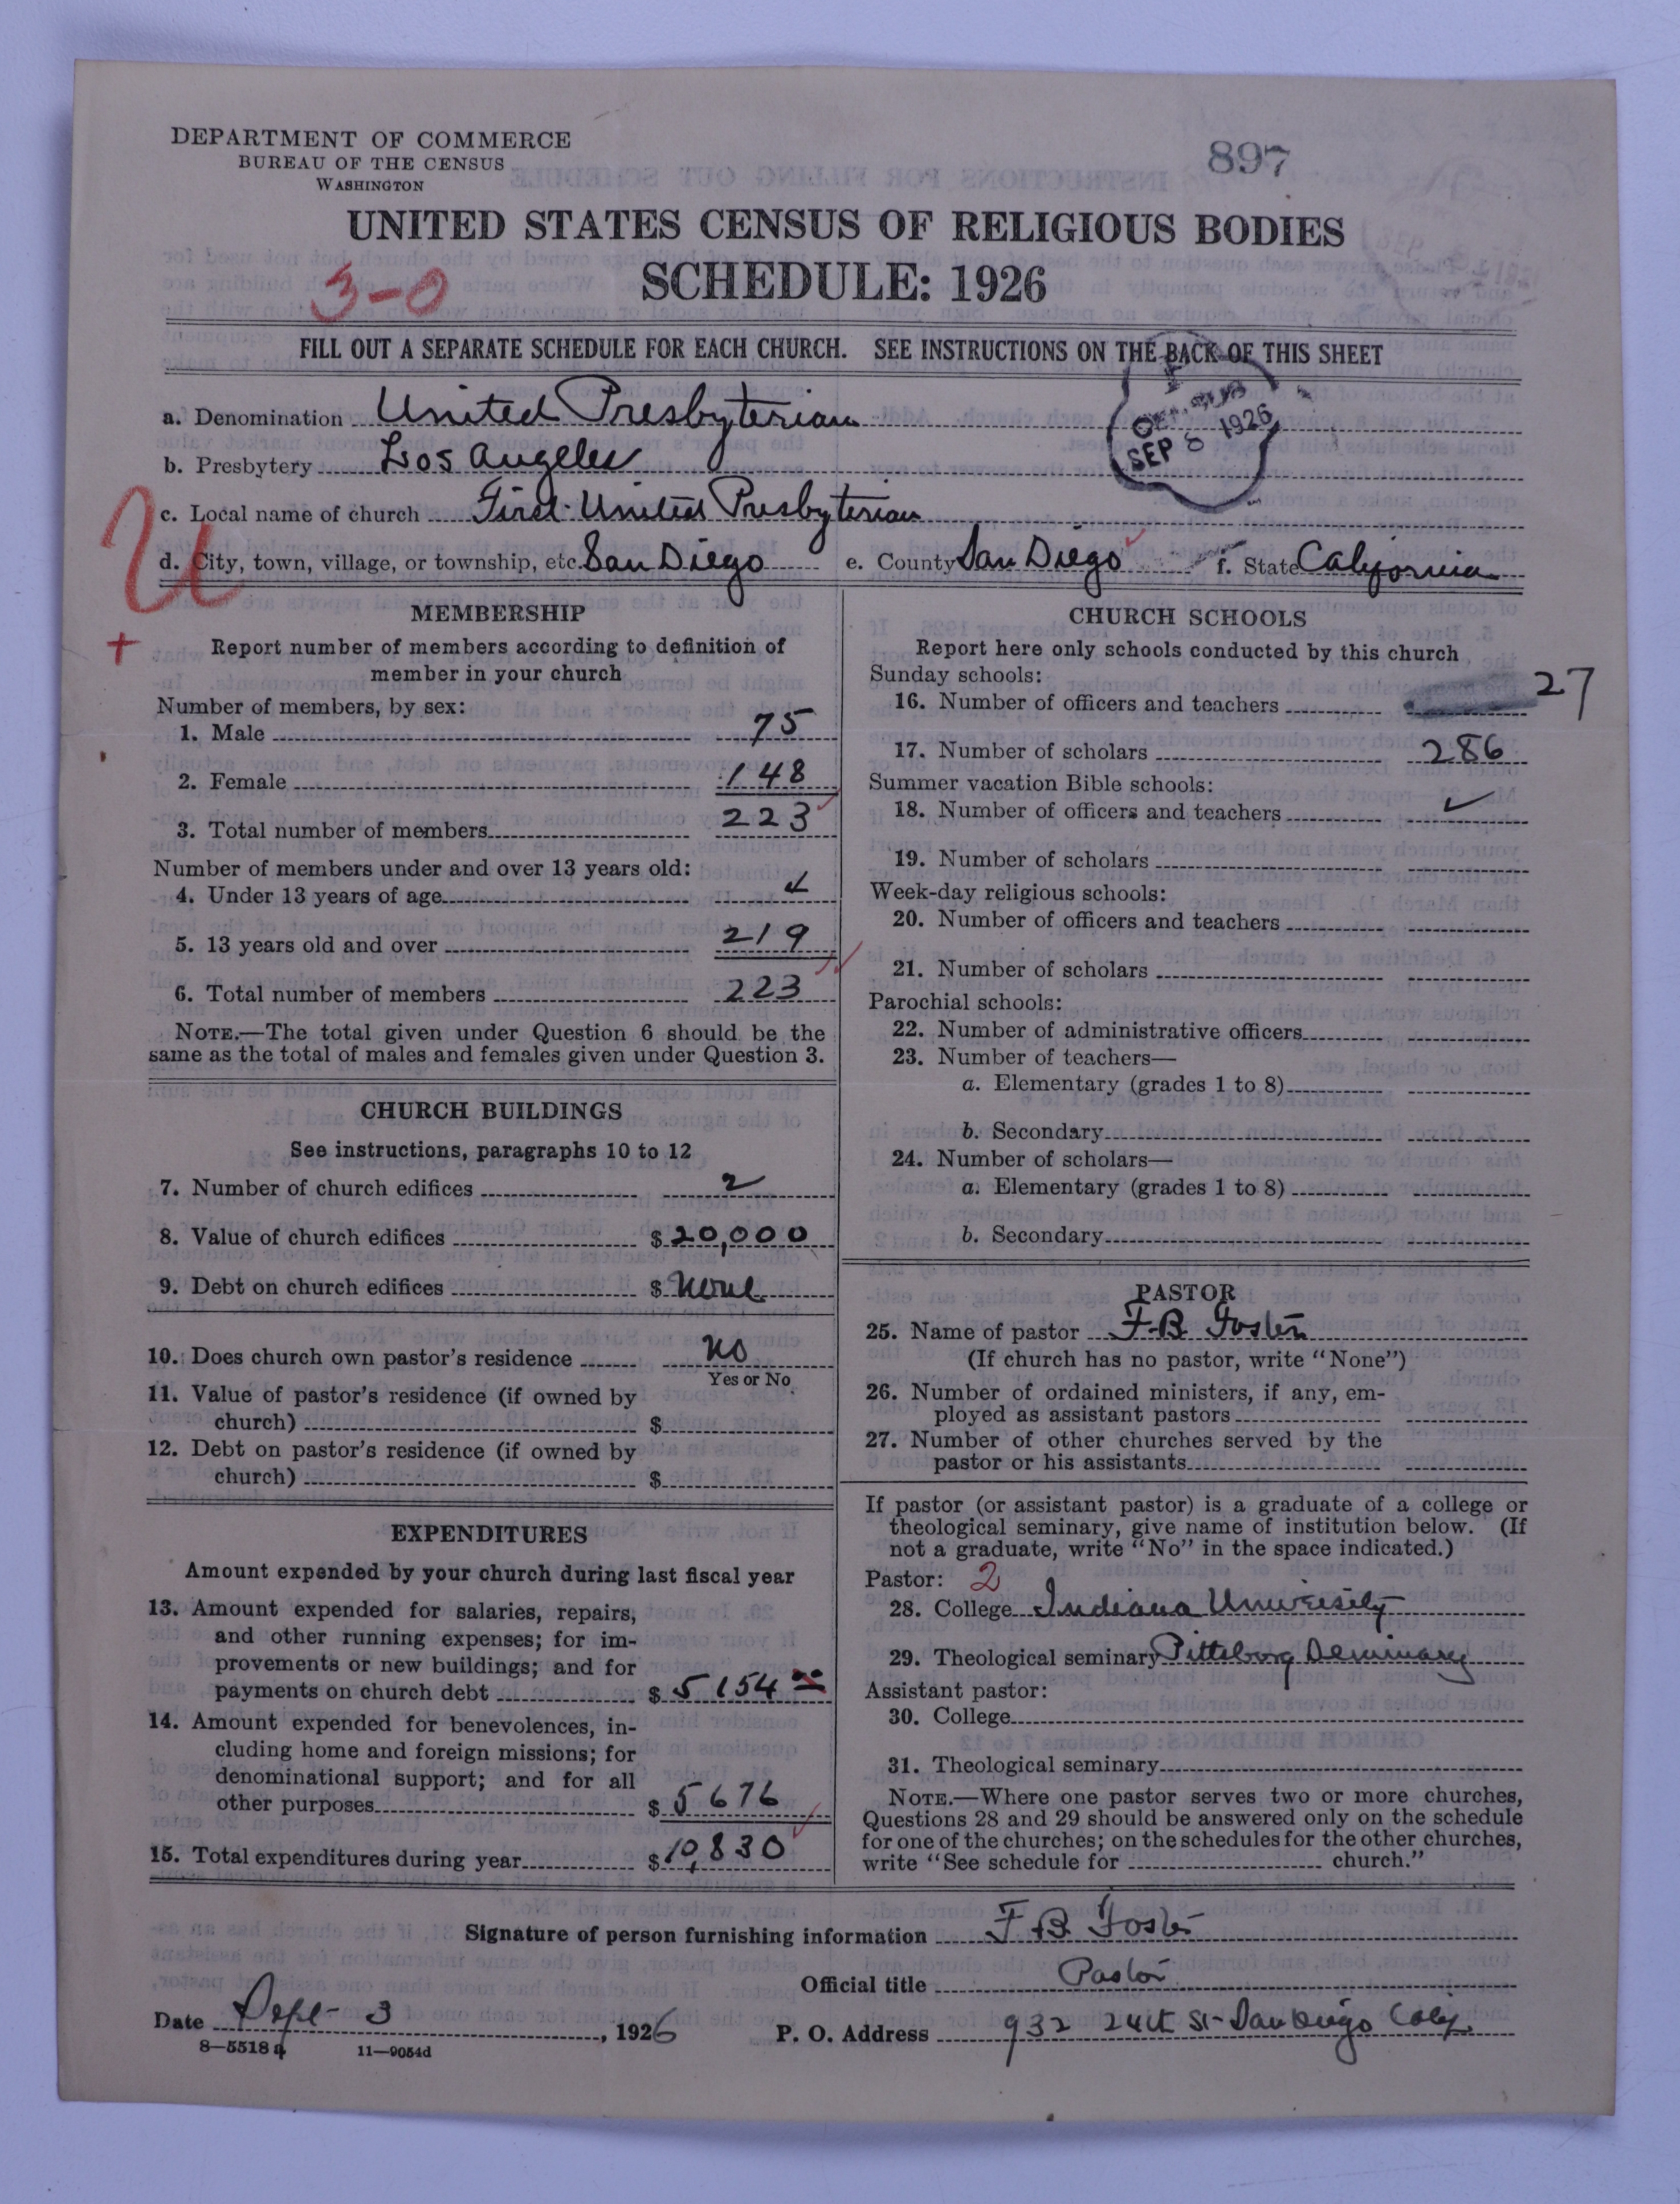 DEPARTMENT OF COMMERCE
BUREAU OF THE CENSUS
WASHINGTON
897
UNITED STATES CENSUS OF RELIGIOUS BODIES
SCHEDULE: 1926
3-0
FILL OUT A SEPARATE SCHEDULE FOR EACH CHURCH. SEE INSTRUCTIONS ON THE BACK OF THIS SHEET
a. Denomination United Presbyterian
SEP 8 1926
b. Presbytery Los Angeles
c. Local name of church First United Presbyterian
U
d. City, town, village, or township, etc. San Diego e. County San Diego f. State California
+
MEMBERSHIP
Report number of members according to definition of
member in your church
Number of members, by sex:
1. Male 75
2. Female 148
3. Total number of members 223
Number of members under and over 13 years old:
4. Under 13 years of age 4
5. 13 years old and over 219
6. Total number of members 223
NOTE.—The total given under Question 6 should be the
same as the total of males and females given under Question 3.
CHURCH BUILDINGS
See instructions, paragraphs 10 to 12
7. Number of church edifices 2
8. Value of church edifices $ 20,000
9. Debt on church edifices $ None
10. Does church own pastor's residence No
Yes or No
11. Value of pastor's residence (if owned by
church) $
12. Debt on pastor's residence (if owned by
church) $
EXPENDITURES
Amount expended by your church during last fiscal year
13. Amount expended for salaries, repairs,
and other running expenses; for im-
provements or new buildings; and for
payments on church debt $ 5154 00
14. Amount expended for benevolences, in-
cluding home and foreign missions; for
denominational support; and for all
other purposes $ 5676
15. Total expenditures during year $ 10,830
CHURCH SCHOOLS
Report here only schools conducted by this church
Sunday schools:
16. Number of officers and teachers 27
17. Number of scholars 286
Summer vacation Bible schools:
18. Number of officers and teachers ✓
19. Number of scholars
Week-day religious schools:
20. Number of officers and teachers
21. Number of scholars
Parochial schools:
22. Number of administrative officers
23. Number of teachers—
a. Elementary (grades 1 to 8)
b. Secondary
24. Number of scholars—
a. Elementary (grades 1 to 8)
b. Secondary
PASTOR
25. Name of pastor F. B. Foster
(If church has no pastor, write "None")
26. Number of ordained ministers, if any, em-
ployed as assistant pastors
27. Number of other churches served by the
pastor or his assistants
If pastor (or assistant pastor) is a graduate of a college or
theological seminary, give name of institution below. (If
not a graduate, write "No" in the space indicated.)
Pastor: 2
28. College Indiana University
29. Theological seminary Pittsburg Seminary
Assistant pastor:
30. College
31. Theological seminary
NOTE.—Where one pastor serves two or more churches,
Questions 28 and 29 should be answered only on the schedule
for one of the churches; on the schedules for the other churches,
write "See schedule for church."
Signature of person furnishing information F B Foster
Official title Pastor
Date Sept- 3, 1926 P. O. Address 932 24th St- San Diego Calif.
8-5518a 11-9054d